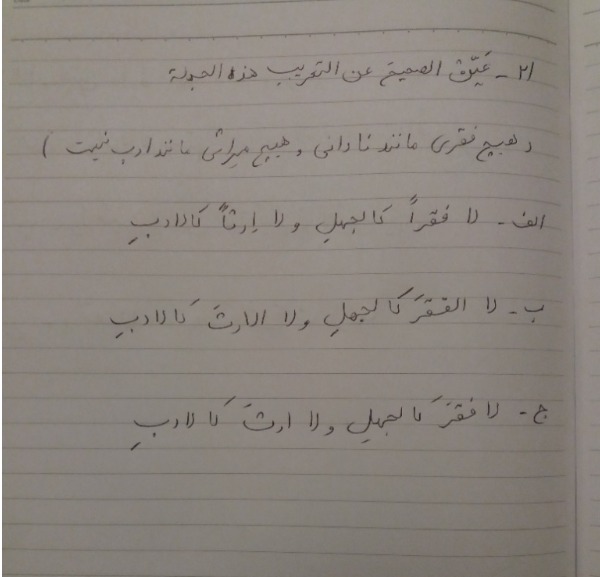 ۲۱ - عَیِّن الصحیح عن التعریب هذه الجملة
( هیچ فقری مانند نادانی و هیچ میراثی مانند ادب نیست )
الف - لا فقراً کالجهلِ ولا اِرثاً کالادبِ
ب - لا الفقرَ کالجهلِ ولا الارثَ کالادبِ
ج - لا فقرَ کالجهلِ ولا ارثَ کالادبِ